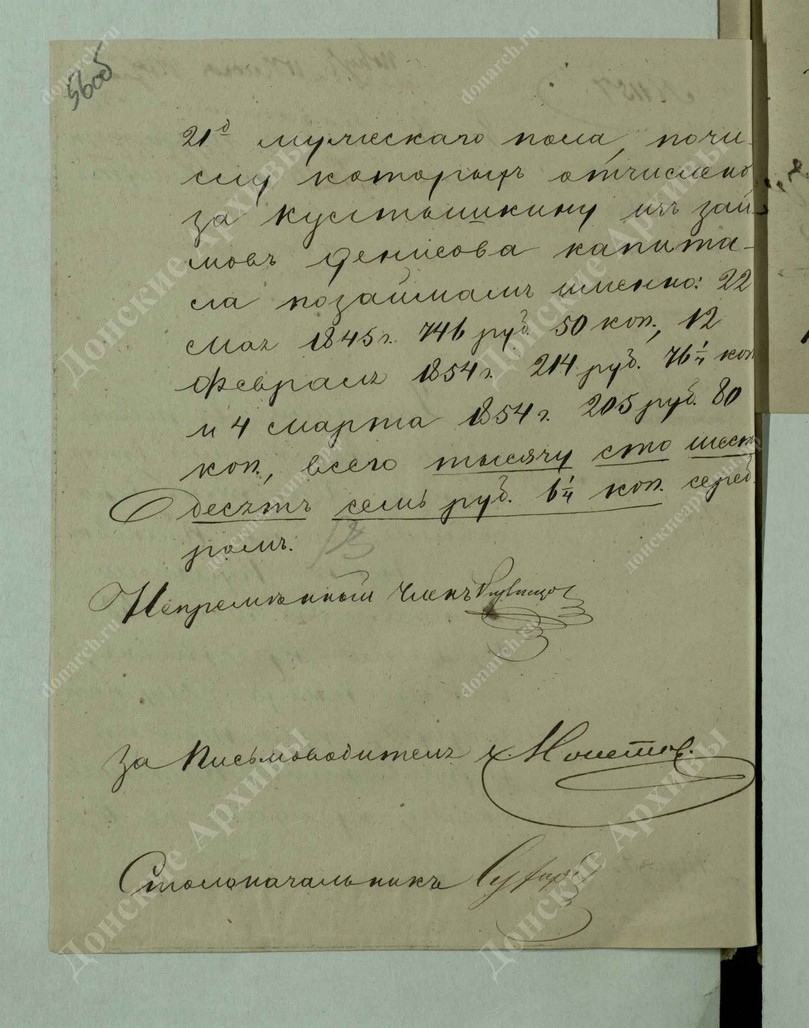 560об
21д мужескаго пола, почи-
слу которыхъ отчислено
за Кустышкину изъ зай-
мовъ Денисова капита-
ла позаймамъ именно: 22
мая 1845 г. 746 руб. 50 коп., 12
февраля 1854 г. 214 руб. 76 1/4 коп
и 4 марта 1854 г. 205 руб. 80
коп., всего тысячу сто шест
десятъ семь руб. 6 1/4 коп. сереб
ромъ.
Непремѣнный Членъ
За Письмоводителя
Столоначальникъ
Донские Архивы
donarch.ru
донскиеархивы.рф